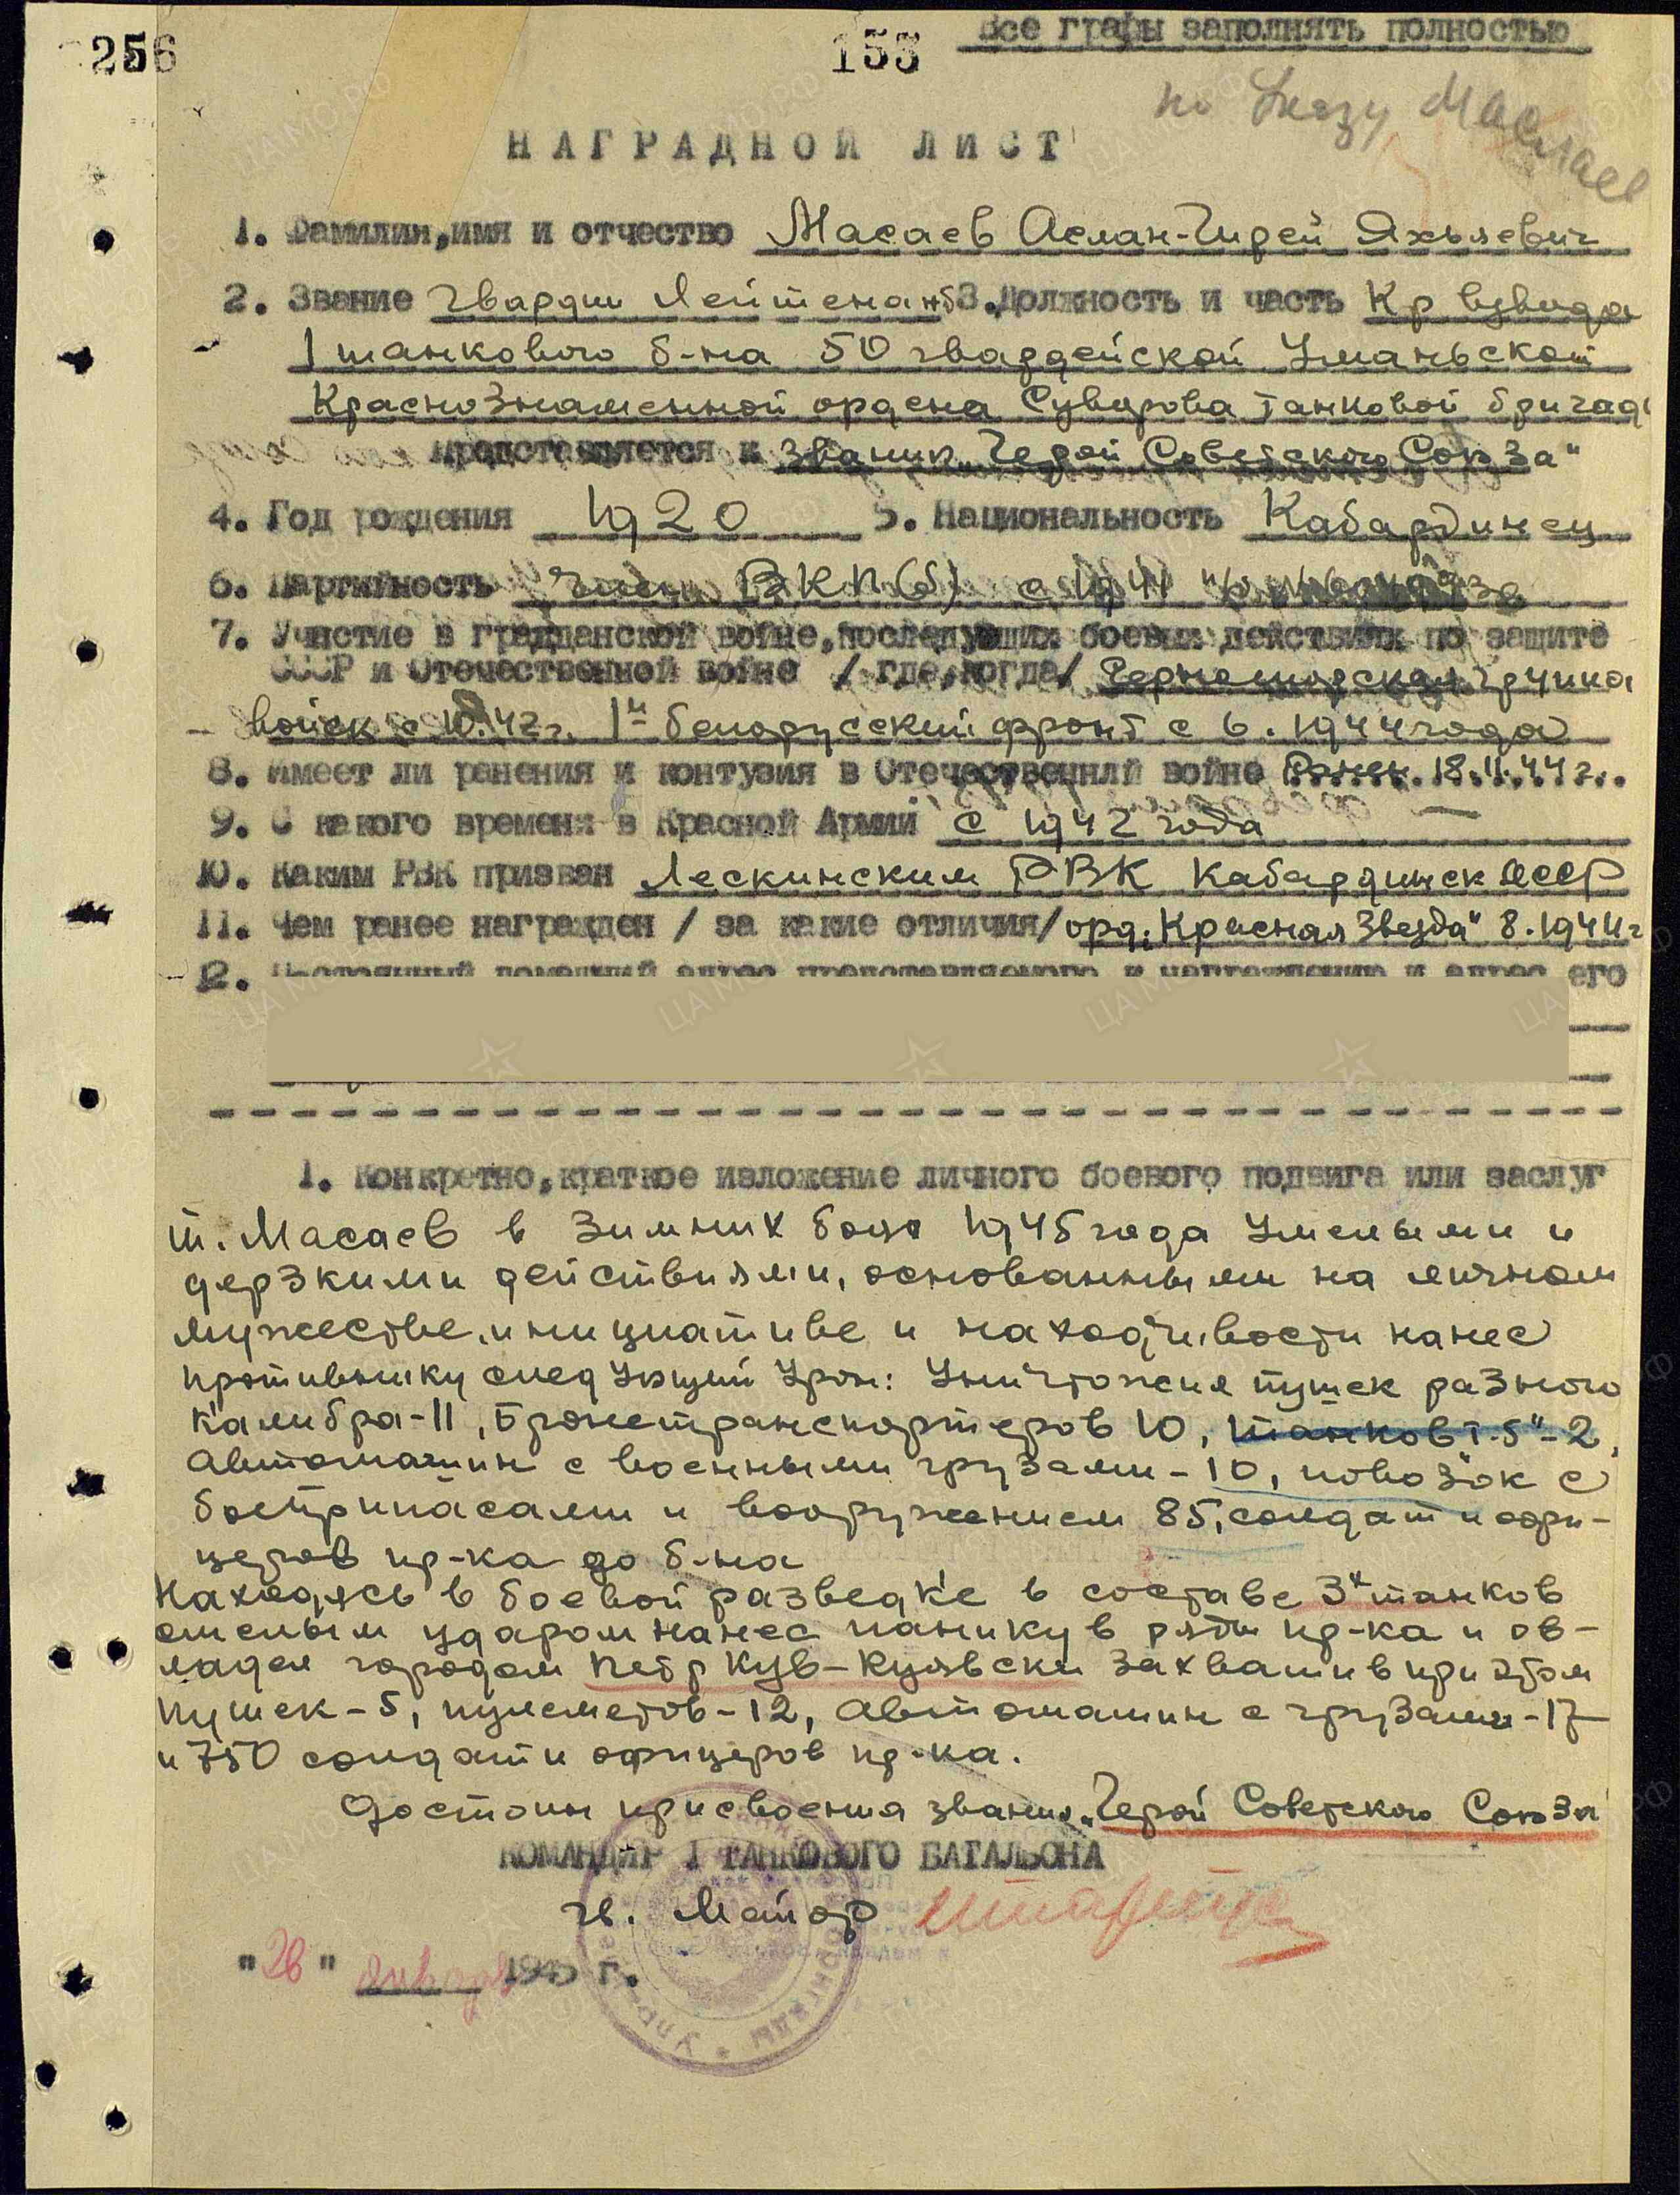 256
155
Все графы заполнять полностью
по Указу
НАГРАДНОЙ ЛИСТ
1. Фамилия,имя и отчество Масаев Аслан-Гирей Яхьяевич
2. Звание гвардии лейтенант 3.Должность и часть Кр взвода
1 танкового б-на 50 гвардейской Уманьской
Краснознаменной ордена Суворова танковой бригады
Представляется к званию „Герой Советского Союза"
4. Год рождения 1920 5. Национальность Кабардинец
6. Партийность член ВКП(б) с 1944
7. Участие в гражданской войне,последующих боевых действиях по защите
СССР и Отечественной войне /где,когда/ Черноморская группа
войск с 10.42г. 1й белорусский фронт с 6.1944 года
8. Имеет ли ранения и контузия в Отечественнлй войне Ранен. 18.11.44г.
9. С какого времени в Красной Армии с 1942 года
10. Каким РВК призван Лескинским РВК Кабардинск АССР
11. Чем ранее награжден / за какие отличия/ орд. „Красная Звезда" 8.1944г
12. Постоянный домашний адрес представляемого к награждению и адрес его
1. Конкретно,краткое изложение личного боевого подвига или заслуг
т. Масаев в зимних боях 1945 года умелыми и
дерзкими действиями, основанными на личном
мужестве, инициативе и находчивости нанес
противнику следующий урон: Уничтожил пушек разного
калибра-11, Бронетранспортеров 10, танков „Т-5"-2,
автомашин с военными грузами-10, повозок с
боеприпасами и вооружением 85, солдат и офи-
церов пр-ка до б-на
Находясь в боевой разведке в составе 3х танков
смелым ударом нанес панику в ряды пр-ка и ов-
ладел городом Петркув-Куявски захватив при этом
пушек-5, пулеметов-12, автомашин с грузами-17
и 750 солдат и офицеров пр-ка.
Достоин присвоения звания „Герой Советского Союза
КОМАНДИР 1 ТАНКОВОГО БАТАЛЬОНА
гв. Майор
"28" января 1945 г.